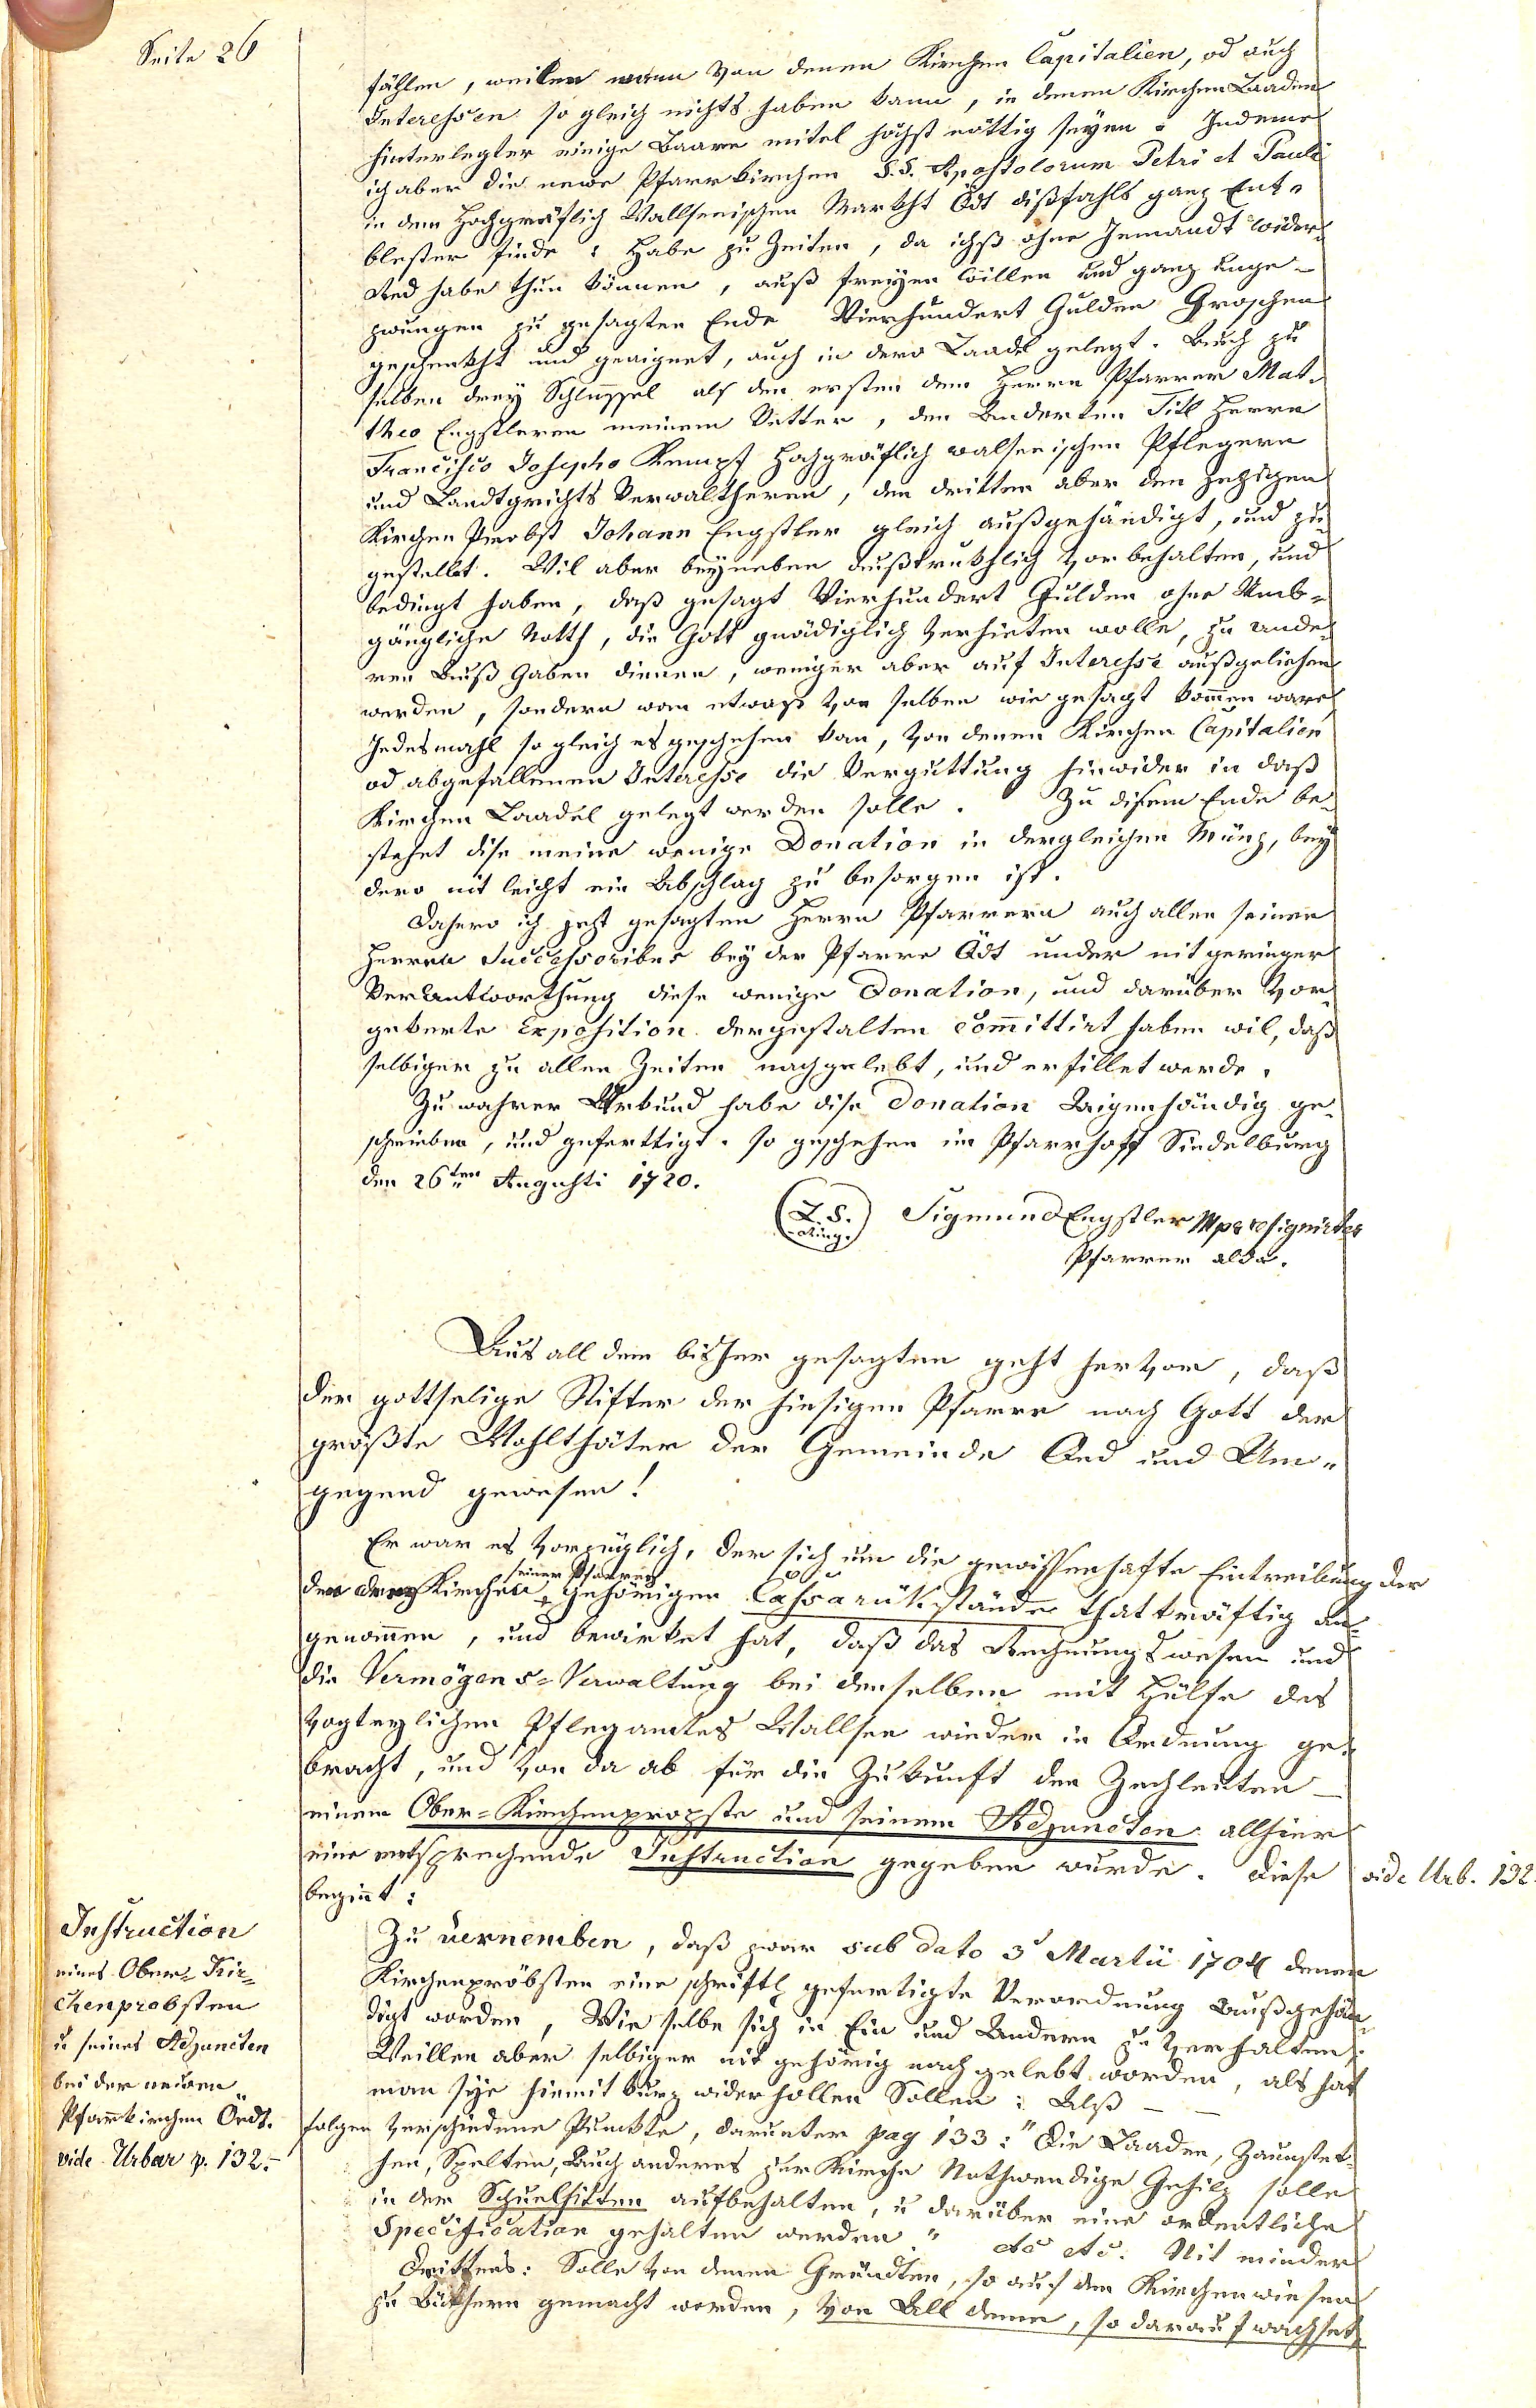 Seite 26
fählen, weillen wann von denen Kirchen Capitalien, od auch
Interessen so gleich nichts haben kann, in denen Kirchen Laaden
hinterlegter einige Baare mitel höchst nöttig seyen: Indeme
ich aber die neue Pfarrkirchen S.S. Apostolorum Petri et Pauli
in dem Hochgräflich Wallseeischen Markht Ödt dißfahls ganz Ent-
blester finde: Habe zu Zeiten, da ichß ohne Jemandt wider
Red habe thun können, auß freyen Willen und ganz unge-
zwungen zu gesagten Ende Vierhundert Gulden Groschen
geschenkht und geaignet, auch in dero Laadel gelegt. Auch zu
selben drey Schlüssel als den ersten dem Herrn Pfarrer Mat-
theo Engstleren meinem Vetter, den Anderten Titl Herrn
Francisco Josepho Kempf Hochgräflich walseeischen Pflegern
und Landtgrichts Verwaltheren, den dritten aber den jezigen
Kirchen Probst Johann Engstler gleich außgehändigt, und zu
gestellet. Wil aber beyneben außtrukhlich vorbehalten, und
bedingt haben, daß gesagt Vierhundert Gulden ohne Umb-
gängliche Noth, die Gott gnädiglich verhieten wolle, zu ande-
ren Auß Gaben dienen, weniger aber auf Interesse außgeliehen
werden, sondern wan etwaß von selben wie gesagt kommen ware
Jedesmahl so gleich es geschehen kan, von denen Kirchen Capitalien
od abgefallenen Interesse die Verguttung hinwider in daß
Kirchen Laadel gelegt werden solle. Zu disem Ende be-
stehet dise meine wenige Donation in dergleichen Münz, bey
dero nit leicht ein Abschlag zu besorgen ist.
Dahero ich jezt gesagten Herrn Pfarrern auch allen seinen
Herren Successoribus bey der Pfarre Ödt under nit geringer
Verantworthung diese wenige Donation, und darüber Vor-
gekerte Exposition dergestalten committirt haben wil, daß
selbiger zu allen Zeiten nachgelebt, und erfillet werde.
Zu wahrer Urkund habe dise Donation Aigenhändig ge-
schrieben, und geferttigt. so geschehen im Pfarrhoff Sindelburg
den 26ten Augusti 1720.
(L.S.) Sigmund Engstler Mpr
Ring.
Pfarrer alda.
Aus all dem bisher gesagten geht hervor, daß
der gottselige Stifter der hiesigen Pfarre nach Gott der
größte Wohlthäter der Gemeinde Oed und Um-
gegend gewesen!
Er war es vorzüglich, der sich um die gewissenhafte Eintreibung der
seiner Pfarrer
den drey Kirchen gehörigen Cassarükstände thatkräftig an-
genommen, und bewirket hat, daß das Rechnungswesen und
die Vermögens-Verwaltung bei denselben mit Hülfe des
vogteylichen Pflegamtes Wallsee wieder in Ordnung ge-
bracht, und von da ab für die Zukunft den Zechleuten –
einem Ober-Kirchenpropste und seinem Adjuncten allhier
eine entsprechende Instruction gegeben wurde. Diese vide Urb. 132.
beginnt:
Instruction
eines Ober-Kir-
chenprobsten
u seines Adjuncten
bei der neuen
Pfarrkirchen Öedt.
vide Urbar p. 132.
Zu vernemben, daß zwar sub dato 3t Martii 1704 denen
Kirchenpröbsten eine schriftl gefertigte Verordnung außgehän-
digt worden, Wie selbe sich in Ein und Andern zu verhalten:
Weillen aber selbiger nit gehörig nachgelebt worden, als hat
man sye hiemit kurz widerhollen Sollen: Alß – –
folgen verschiedene Punkte, darunter pag 133: "Die Laaden, Zaunstek-
hen, Spelten, Auch anderes zur Kirche Nothwendige Gehilz solle
in der Schuelhitten aufbehalten, u darüber eine ordentliche
Specification gehalten werden." etc etc. Nit minder
Drittens: Solle von denen Gründten, so auf den Kirchenwiesen
zu gemacht worden, von All deme, so darauf wachset,